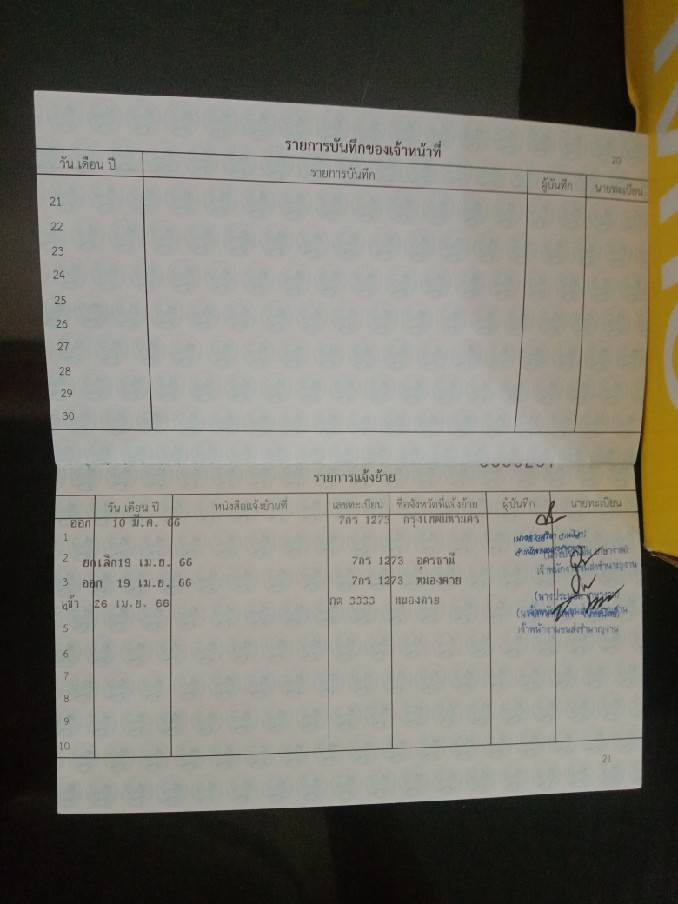 รายการบันทึกของเจ้าหน้าที่
20
วัน เดือน ปี รายการบันทึก ผู้บันทึก นายทะเบียน
21
22
23
24
25
26
27
28
29
30
รายการแจ้งย้าย
วัน เดือน ปี หนังสือแจ้งย้ายที่ เลขทะเบียน ชื่อจังหวัดที่แจ้งย้าย ผู้บันทึก นายทะเบียน
ออก 10 มี.ค. 66 7กร 1273 กรุงเทพมหานคร
1
2 ยกเลิก19 เม.ย. 66 7กร 1273 อุดรธานี
3 ออก 19 เม.ย. 66 7กร 1273 หนองคาย
4 เข้า 26 เม.ย. 66 กต 3333 หนองคาย
5
เจ้าพนักงานขนส่งชำนาญงาน
6
7
8
9
10
21